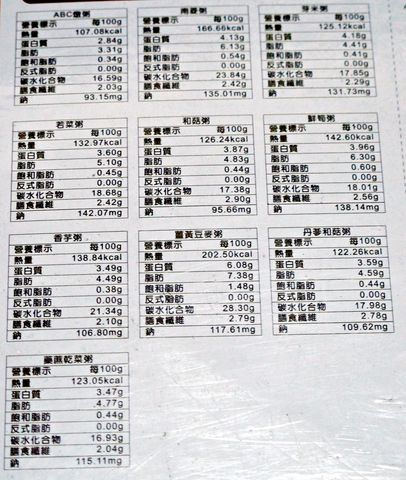 ABC燉粥
營養標示 每100g
熱量 107.08kcal
蛋白質 2.84g
脂肪 3.31g
飽和脂肪 0.34g
反式脂肪 0.00g
碳水化合物 16.59g
膳食纖維 2.03g
鈉 93.15mg
南蓉粥
營養標示 每100g
熱量 166.66kcal
蛋白質 4.13g
脂肪 6.13g
飽和脂肪 0.54g
反式脂肪 0.00g
碳水化合物 23.84g
膳食纖維 2.42g
鈉 135.01mg
芽米粥
營養標示 每100g
熱量 125.12kcal
蛋白質 4.18g
脂肪 4.41g
飽和脂肪 0.41g
反式脂肪 0.00g
碳水化合物 17.85g
膳食纖維 2.29g
鈉 131.73mg
若菜粥
營養標示 每100g
熱量 132.97kcal
蛋白質 3.60g
脂肪 5.10g
飽和脂肪 0.45g
反式脂肪 0.00g
碳水化合物 18.68g
膳食纖維 2.42g
鈉 142.07mg
和菇粥
營養標示 每100g
熱量 126.24kcal
蛋白質 3.87g
脂肪 4.83g
飽和脂肪 0.44g
反式脂肪 0.00g
碳水化合物 17.38g
膳食纖維 2.90g
鈉 95.66mg
鮮筍粥
營養標示 每100g
熱量 142.60kcal
蛋白質 3.96g
脂肪 6.30g
飽和脂肪 0.60g
反式脂肪 0.00g
碳水化合物 18.01g
膳食纖維 2.56g
鈉 138.14mg
香芋粥
營養標示 每100g
熱量 138.84kcal
蛋白質 3.49g
脂肪 4.49g
飽和脂肪 0.38g
反式脂肪 0.00g
碳水化合物 21.34g
膳食纖維 2.10g
鈉 106.80mg
薑黃豆麥粥
營養標示 每100g
熱量 202.50kcal
蛋白質 6.08g
脂肪 7.38g
飽和脂肪 1.48g
反式脂肪 0.00g
碳水化合物 28.30g
膳食纖維 2.79g
鈉 117.61mg
丹蔘和菇粥
營養標示 每100g
熱量 122.26kcal
蛋白質 3.59g
脂肪 4.59g
飽和脂肪 0.44g
反式脂肪 0.00g
碳水化合物 17.98g
膳食纖維 2.78g
鈉 109.62mg
乾菜粥
營養標示 每100g
熱量 123.05kcal
蛋白質 3.47g
脂肪 4.77g
飽和脂肪 0.44g
反式脂肪 0.00g
碳水化合物 16.93g
膳食纖維 2.04g
鈉 115.11mg